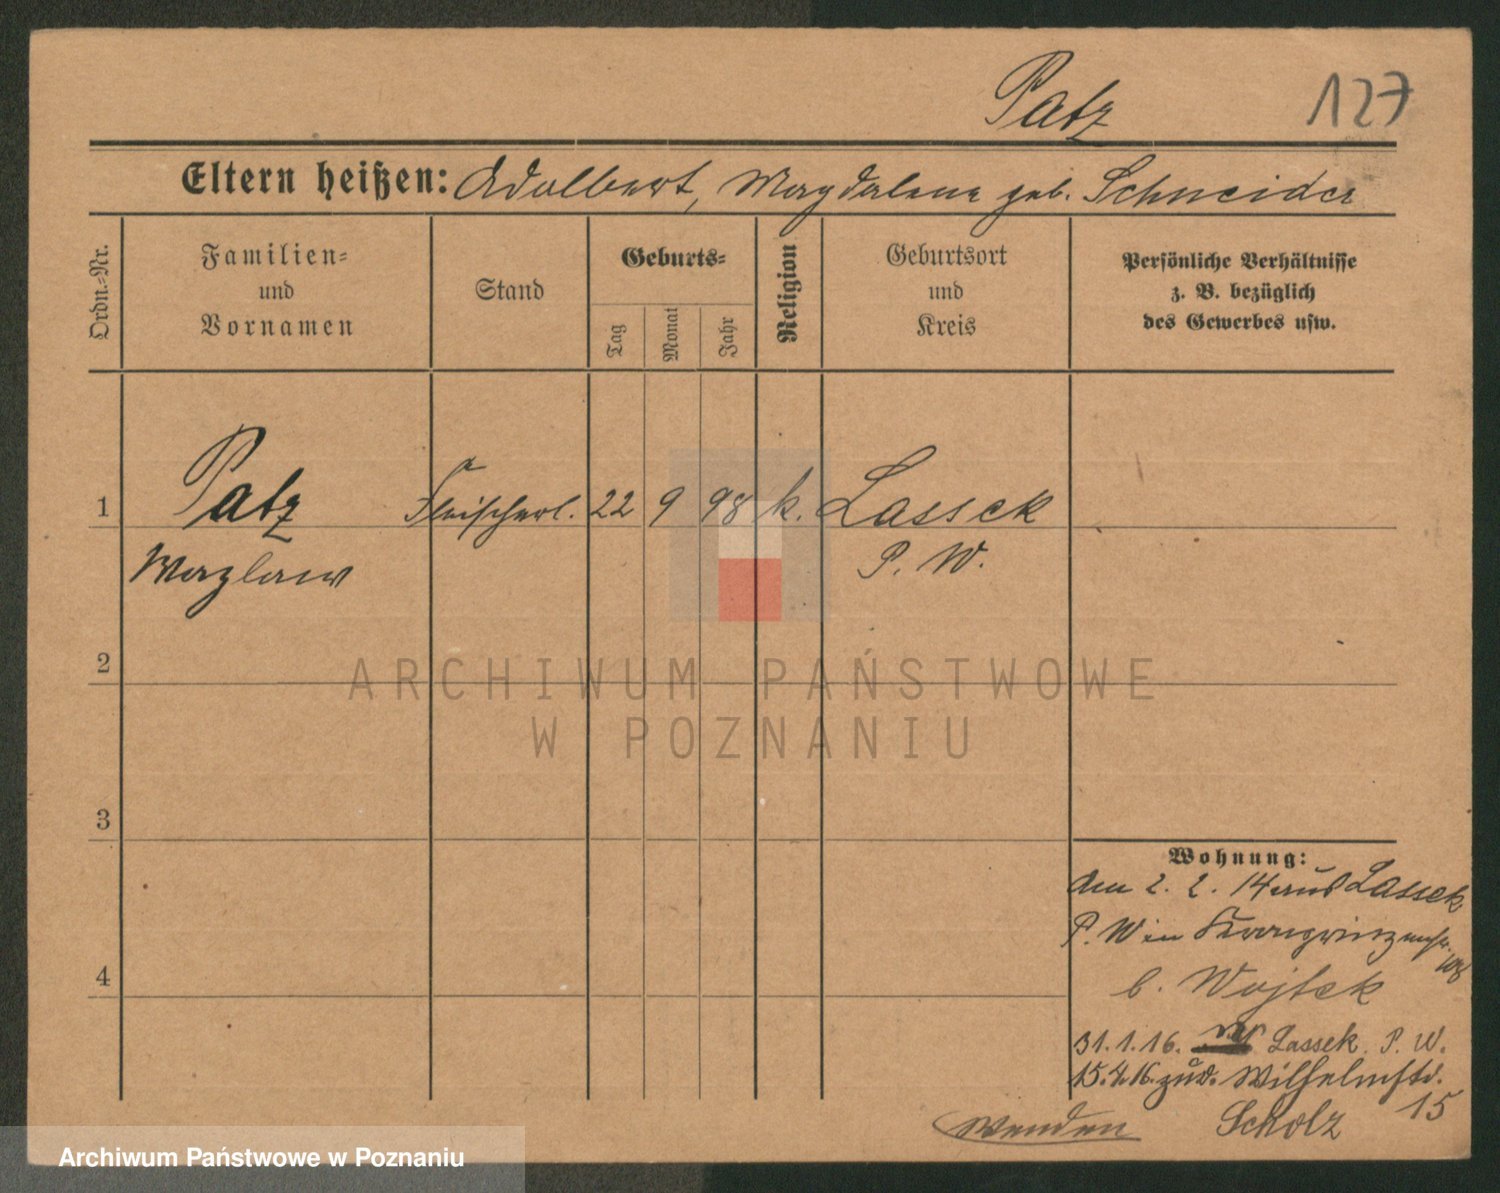 Patz
127
Eltern heißen: Adalbert, Magdalena geb. Schneider
Ordn.-Nr.
Familien=
und
Vornamen
Stand
Geburts=
Tag
Monat
Jahr
Religion
Geburtsort
und
Kreis
Persönliche Verhältnisse
z. B. bezüglich
des Gewerbes usw.
1 Patz Fleischerl. 22 9 98 k. Lassek
Wazlaw P. W.
2
3
4
ARCHIWUM PAŃSTWOWE
W POZNANIU
Wohnung:
Am 2. 2. 14 aus Lassek
P. W in Kronprinzenstr.
b. Wojtek
31.1.16. Lassek. P. W.
15.4.16. zud. Wilhelmstr.
Scholz 15
Wenden
Archiwum Państwowe w Poznaniu